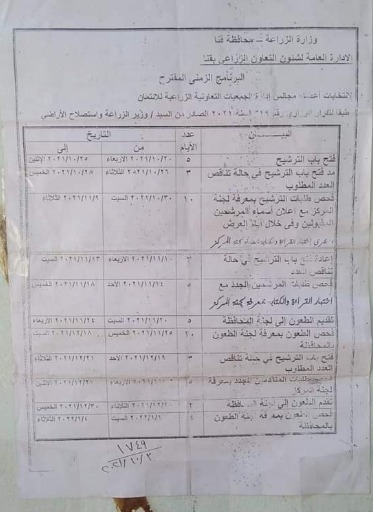 وزارة الزراعة - محافظة قنا
الادارة العامة لشئون التعاون الزراعي بقنا
البرنامج الزمني المقترح
لانتخابات اعضاء مجالس إدارة الجمعيات التعاونية الزراعية للائتمان
طبقا للقرار الوزاري رقم لسنة ٢٠٢١ الصادر من السيد / وزير الزراعة واستصلاح الأراضي
البيـــــان عدد الأيام التاريخ
من إلى
فتح باب الترشيح ٥ ٢٠٢١/١٠/٢٠ الاربعاء ٢٠٢١/١٠/٢٥ الاثنين
مد فتح باب الترشيح في حالة تناقص العدد المطلوب ٣ ٢٠٢١/١٠/٢٦ الثلاثاء ٢٠٢١/١٠/٢٨ الخميس
فحص طلبات الترشيح بمعرفة لجنة المركز مع إعلان أسماء المرشحين المقبولين وفى خلال العرض ١٠ ٢٠٢١/١٠/٣٠ السبت
اختبار القراءة والكتابة
إعادة فتح باب الترشيح في حالة تناقص العدد ٣ ٢٠٢١/١١/١٠ الاربعاء ٢٠٢١/١١/١٣ السبت
فحص طلبات المرشحين الجدد مع ٥ ٢٠٢١/١١/١٤ الاحد ٢٠٢١/١١/١٨ الخميس
اختبار القراءة والكتابة بمعرفة لجنة المركز
تقديم الطعون إلى لجنة المحافظة ٥ ٢٠٢١/١١/٢٠ السبت ٢٠٢١/١١/٢٤ الاربعاء
فحص الطعون بمعرفة لجنة الطعون بالمحافظة ٢٠ ٢٠٢١/١١/٢٥ الخميس
فتح باب الترشيح في حالة تناقص العدد المطلوب ٣ ٢٠٢١/١٢/١٩ الاحد ٢٠٢١/١٢/٢١ الثلاثاء
طلبات المتقدمين الجدد بمعرفة لجنة المركز ٥ الاربعاء الاثنين
تقدم الطعون إلى لجنة المحافظة ٢ الثلاثاء ٢٠٢١/١٢/٣٠ الخميس
فحص الطعون بمعرفة لجنة الطعون بالمحافظة ٤ ٢٠٢٢/١/١ السبت ٢٠٢٢/١/٤ الثلاثاء
١٧٤٩
٢٠٢١/١٠/٣